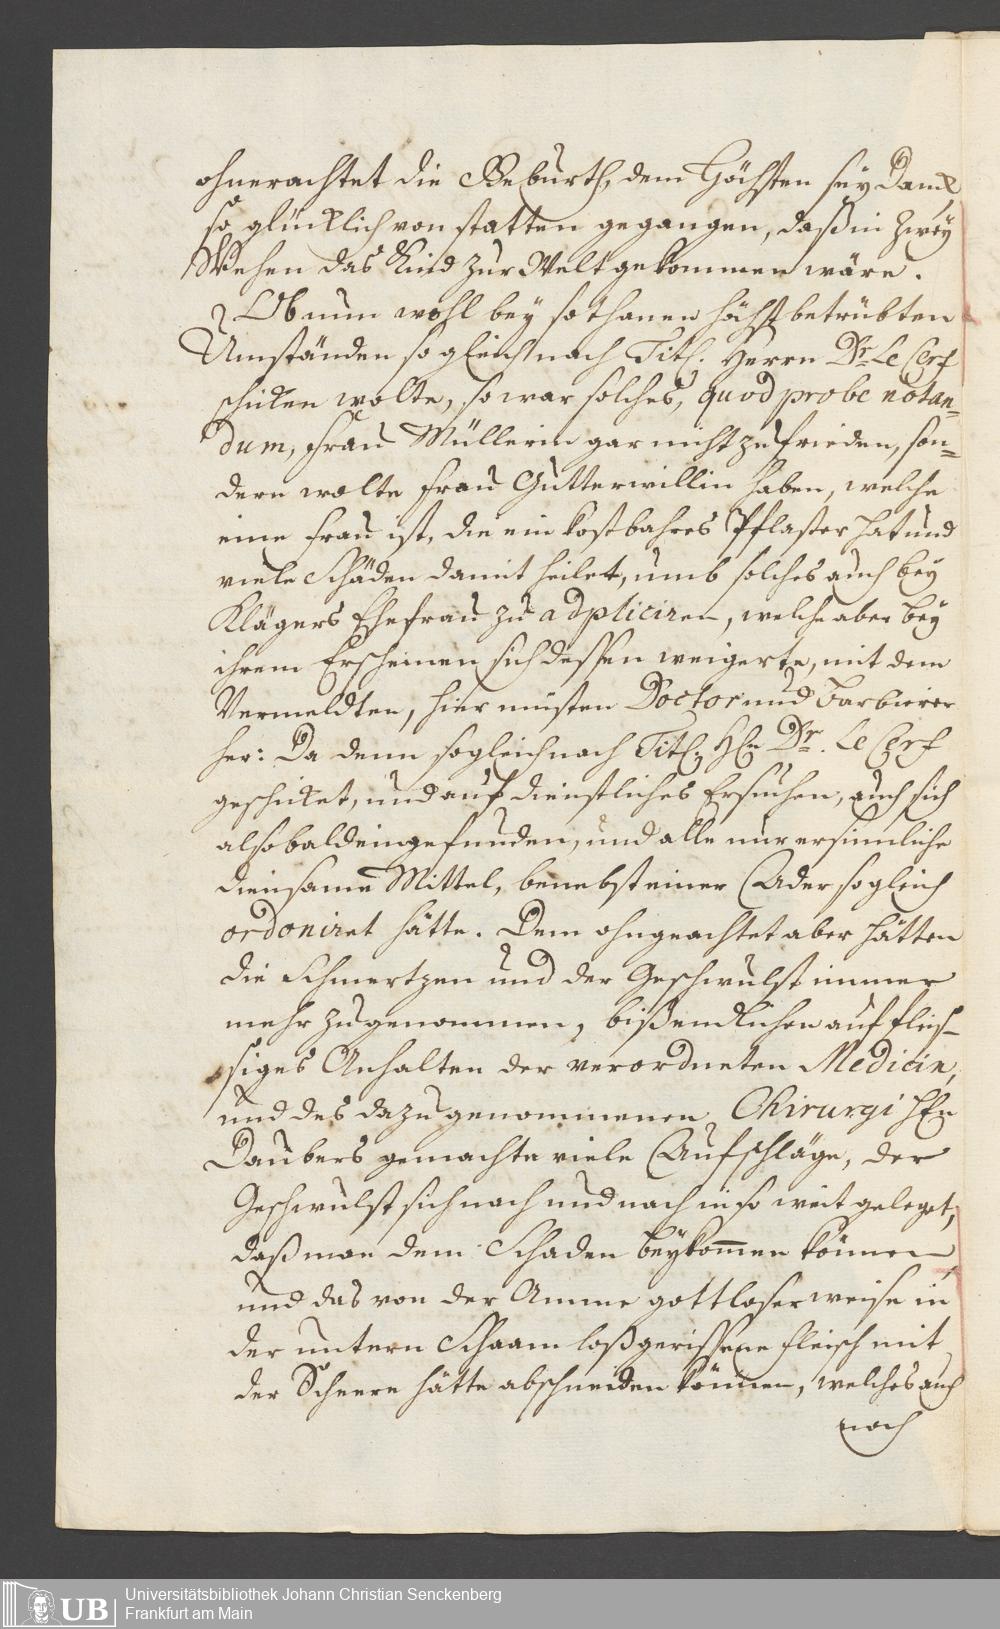 ohnerachtet die Geburth, dem Höchsten sey Danck
so glücklich von statten gegangen, daß in zwey
Wehen das Kind zur Welt gekommen wäre.
Ob nun wohl bey so thanen höchst betrübten
Umständen so gleich nach Titl: Herrn Dr. Le Cerf
schicken wolte, so war solches, quod probe notan-
dum, Frau Müllerin gar nicht zu frieden, son-
dern wolte Frau Gutterwillin haben, welche
eine Frau ist, die ein kostbahres Pflaster hat und
viele Schäden damit heilet, umb solches auch bey
Klägers Ehefrau zu adpliciren, welche aber bey
ihrem Erscheinen sich dessen weigerte, mit dem
Vermeldten, hier müsten Doctor und Barbierer
her: Da denn sogleich nach Titl: HEn Dr. Le Cerf
geschicket, und auf dienstliches Ersuchen, auch sich
alsobald eingefunden, und alle nur ersinnliche
diensame Mittel, benebst einer Ader so gleich
ordoniret hätte. Dem ohngeachtet aber hätten
die Schmertzen und der Geschwulst immer
mehr zugenommen, biß endlichen auf fleis-
siges Anhalten der verordneten Medicin,
und des dazu genommenen Chirurgi HEn
Daubers gemachte viele Aufschläge, der
Geschwulst sich nach und nach in so weit geleget,
daß man dem Schaden beykommen können
und das von der Amme gottloser weise in
der untern Schaam loßgerissene Fleisch mit
der Scheere hätte abschneiden können, welches auch
noch
UB
Universitätsbibliothek Johann Christian Senckenberg
Frankfurt am Main